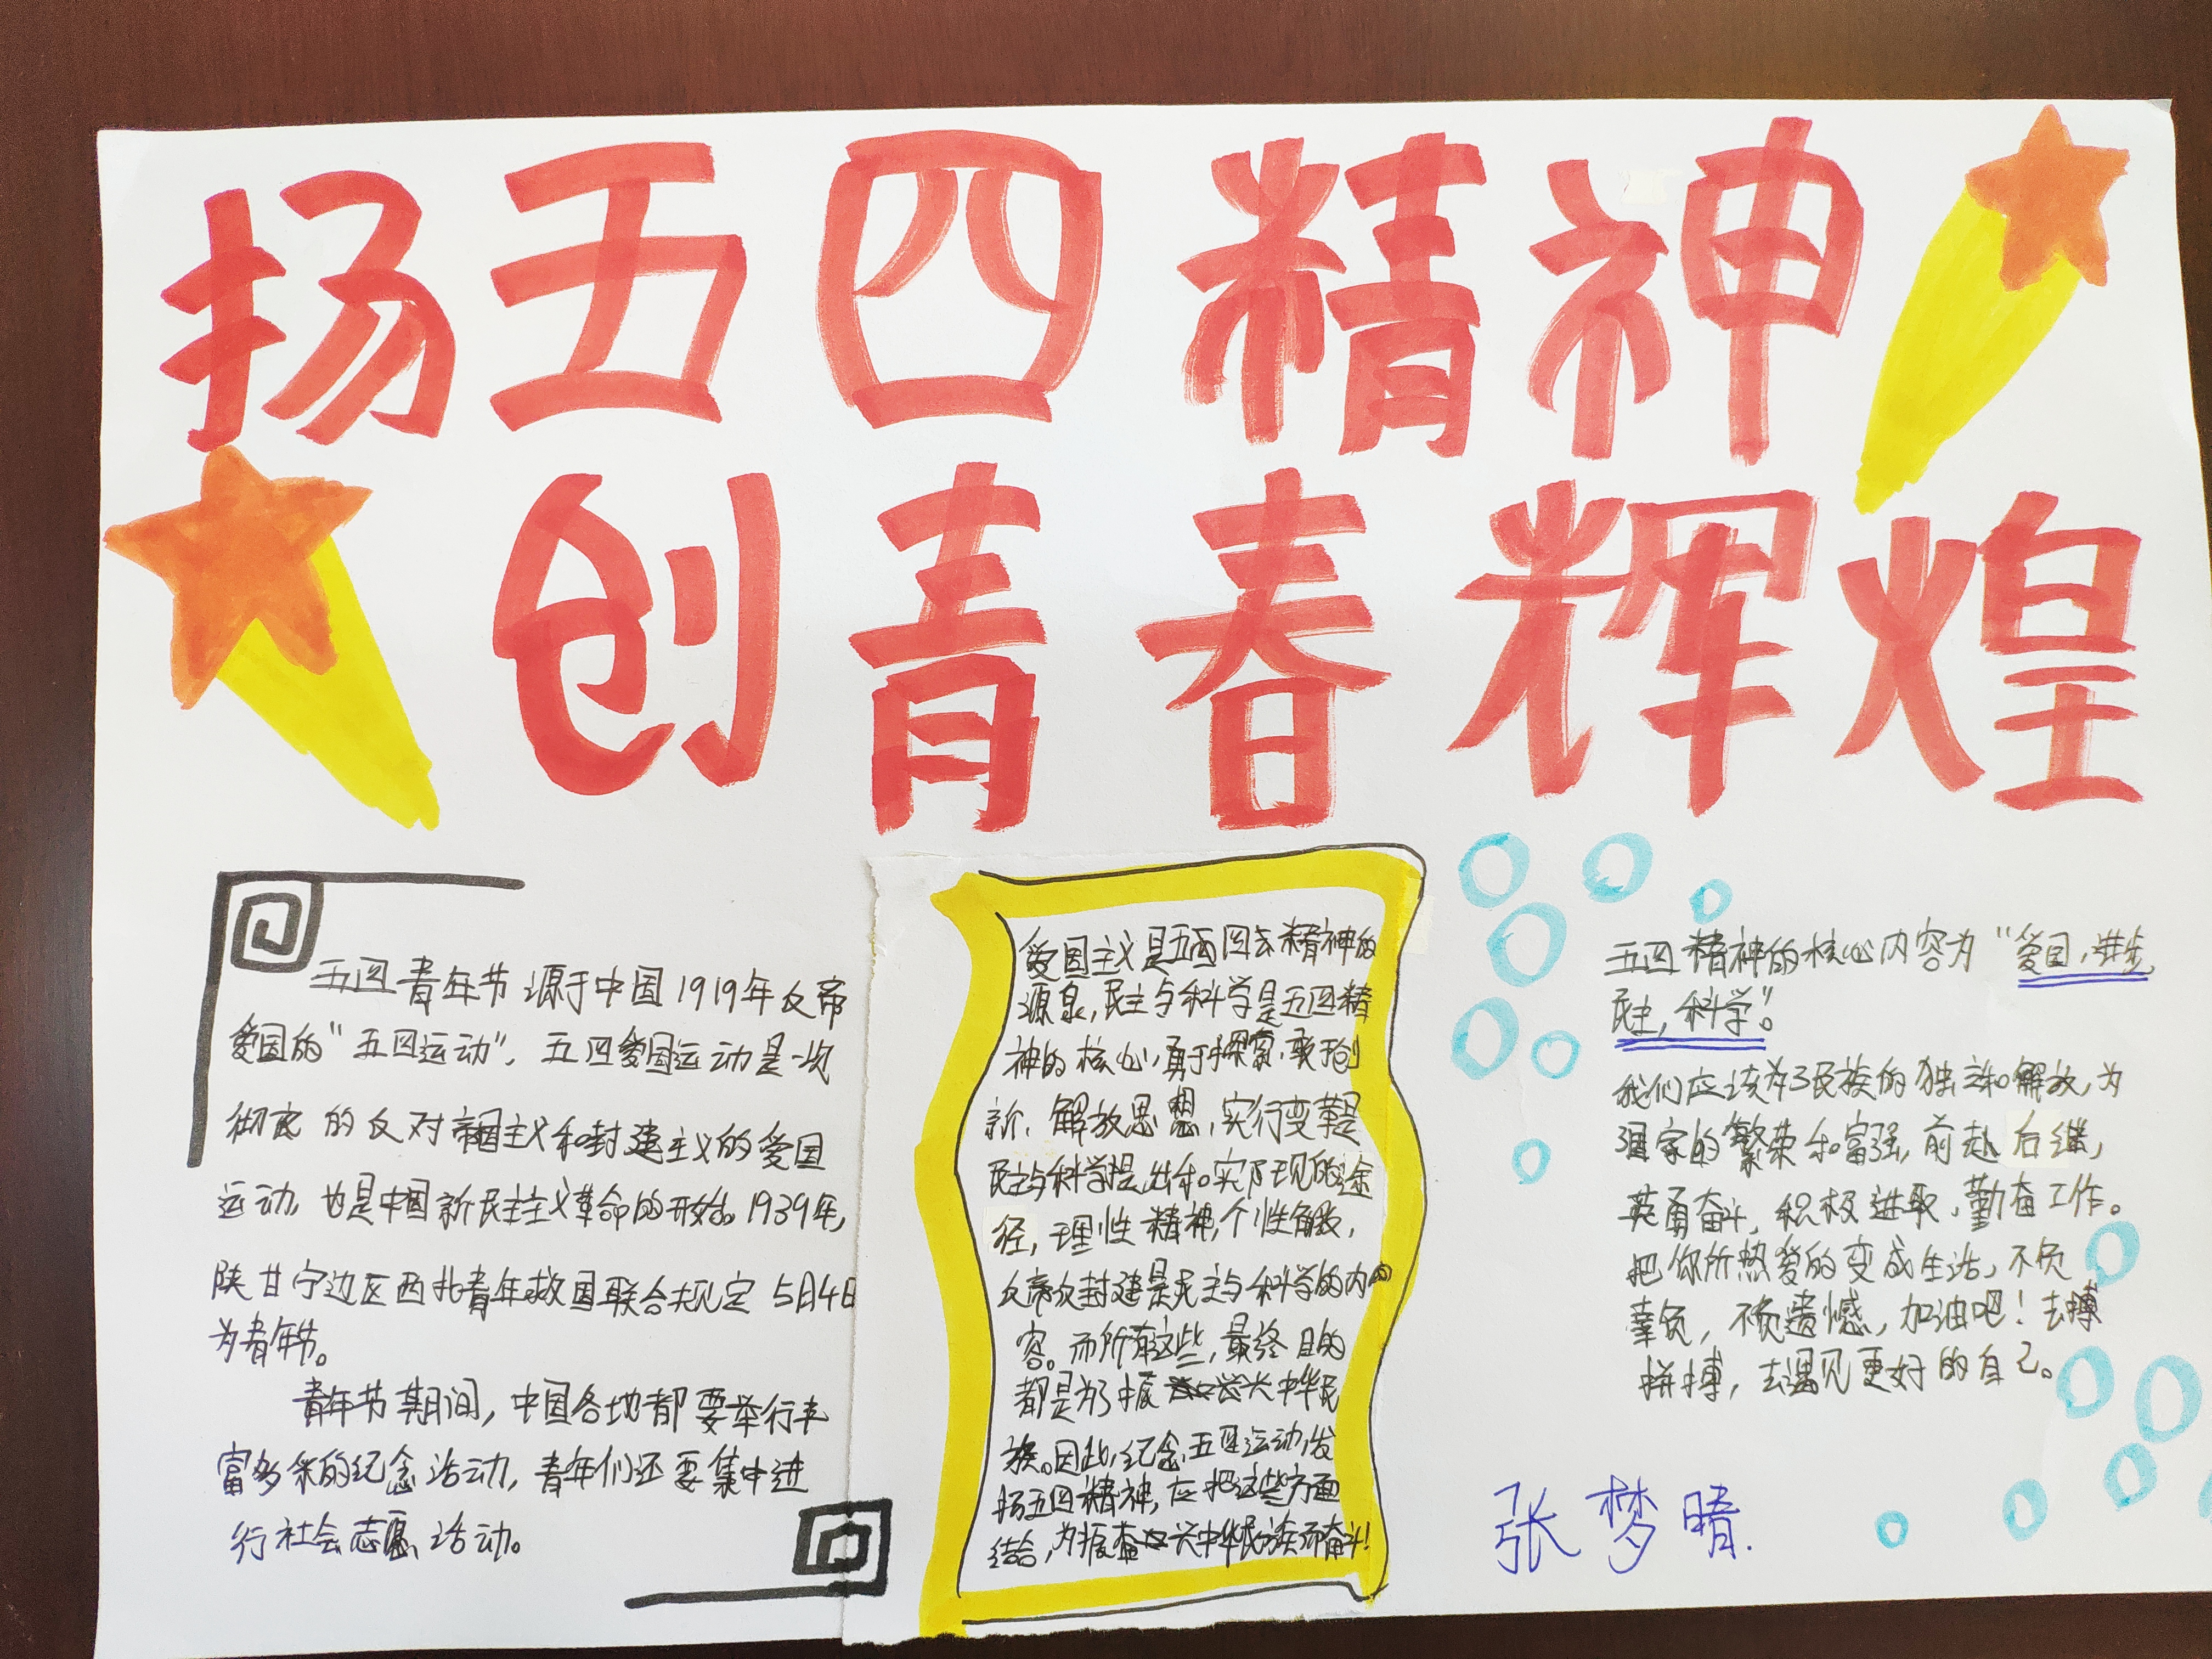 扬五四精神
创青春辉煌
五四青年节源于中国1919年反帝
爱国的“五四运动”，五四爱国运动是一次
彻底的反对帝国主义和封建主义的爱国
运动，也是中国新民主主义革命的开始。1939年，
陕甘宁边区西北青年救国联合规定5月4日
为青年节。
青年节期间，中国各地都要举行丰
富多采的纪念活动，青年们还要集中进
行社会志愿活动。
爱国主义是五四精神的
源泉，民主与科学是五四精
神的核心，勇于探索，敢于创
新，解放思想，实行变革是
民主与科学提出和实现的途
径，理性精神，个性解放，
反帝反封建是民主与科学的内
容。而所有这些，最终目的
都是为了振兴中华民
族。因此，纪念五四运动，发
扬五四精神，应把这些方面
结合，为振兴中华民族而奋斗！
五四精神的核心内容为“爱国，进步，
民主，科学”。
我们应该为了民族的独立和解放，为
国家的繁荣和富强，前赴后继，
英勇奋斗，积极进取，勤奋工作。
把你所热爱的变成生活，不负
辜负，不负遗憾，加油吧！去搏
拼搏，去遇见更好的自己。
张梦晴.